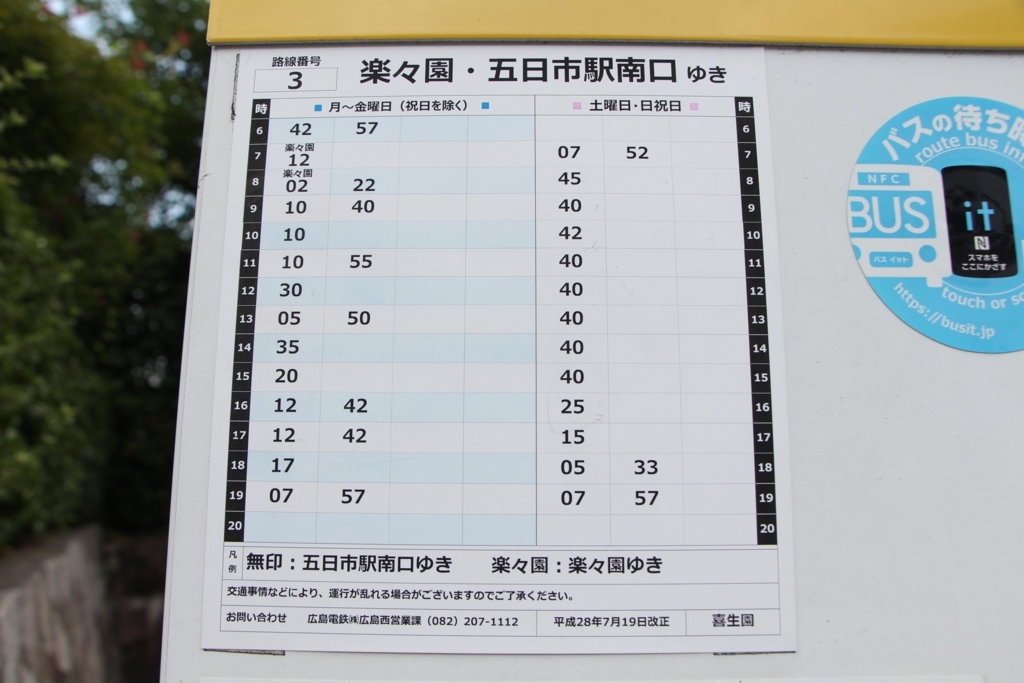 路線番号
3
楽々園・五日市駅南口 ゆき
時 月～金曜日（祝日を除く） 土曜日・日祝日 時
6 42 57 6
楽々園
7 12 07 52 7
楽々園
8 02 22 45 8
9 10 40 40 9
10 10 42 10
11 10 55 40 11
12 30 40 12
13 05 50 40 13
14 35 40 14
15 20 40 15
16 12 42 25 16
17 12 42 15 17
18 17 05 33 18
19 07 57 07 57 19
20 20
凡例 無印：五日市駅南口ゆき 楽々園：楽々園ゆき
交通事情などにより、運行が乱れる場合がございますのでご了承ください。
お問い合わせ 広島電鉄㈱広島西営業課（082）207-1112 平成28年7月19日改正 喜生園
バスの待ち時
route bus in
NFC
BUS
バス イット
it
N
スマホを
ここにかざす
touch or sc
https://busit.jp